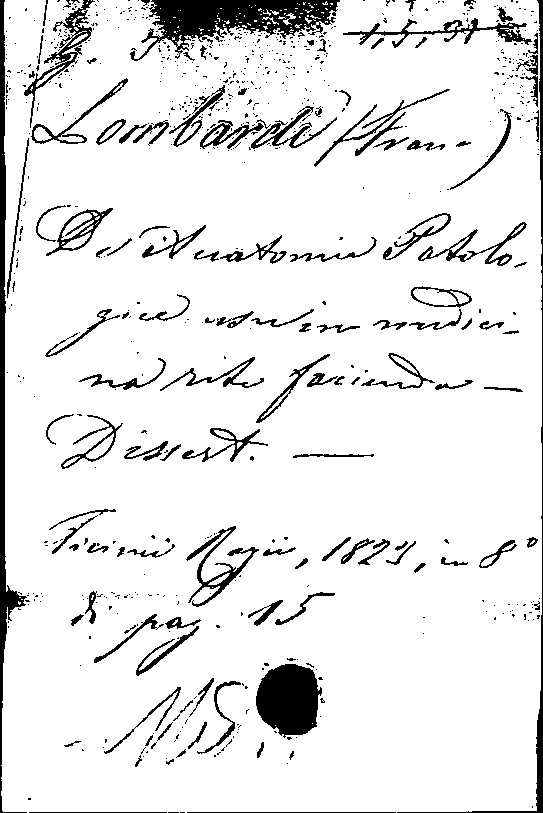 1, 5, 31
Lombardi (Fran.)
De Anatomia Patolo-
gicæ usu in medici-
na rite faciendo —
Dissert. —
Ticinii Regii, 1823, in 8°
di pag. 15